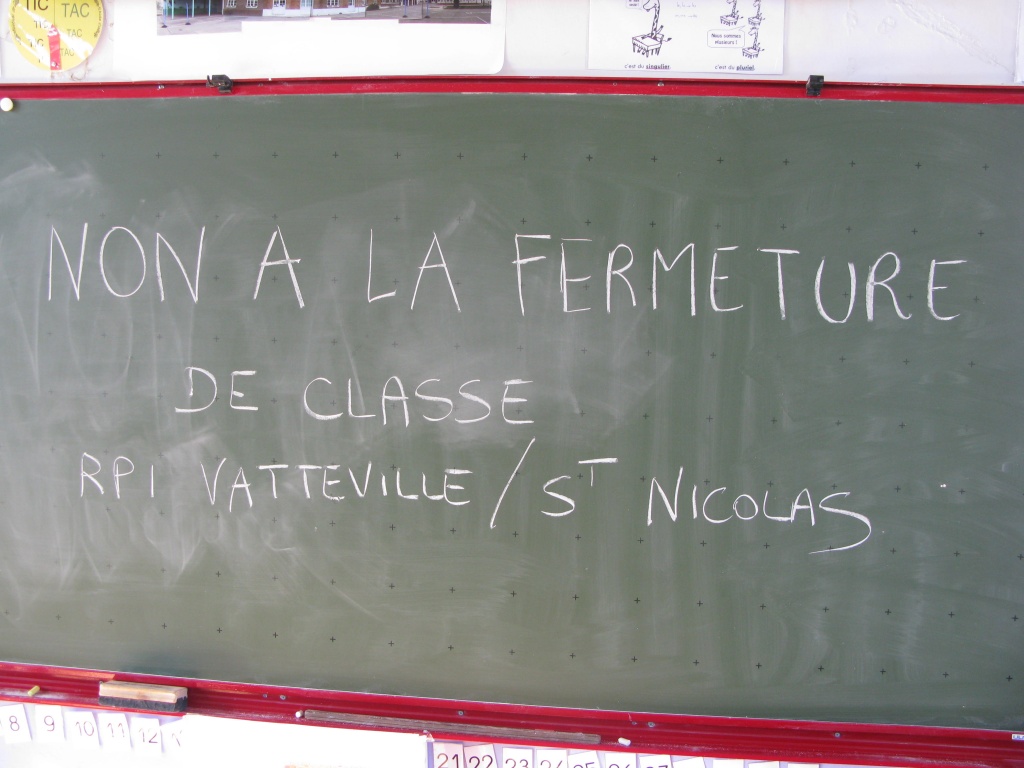 TIC TAC
TIC TAC
TIC TAC
Nous sommes
plusieurs !
c'est du singulier.
c'est du pluriel
NON A LA FERMETURE
DE CLASSE
RPI VATTEVILLE / ST NICOLAS
8 9 10 11 12
21 22 23 24 25 26 27